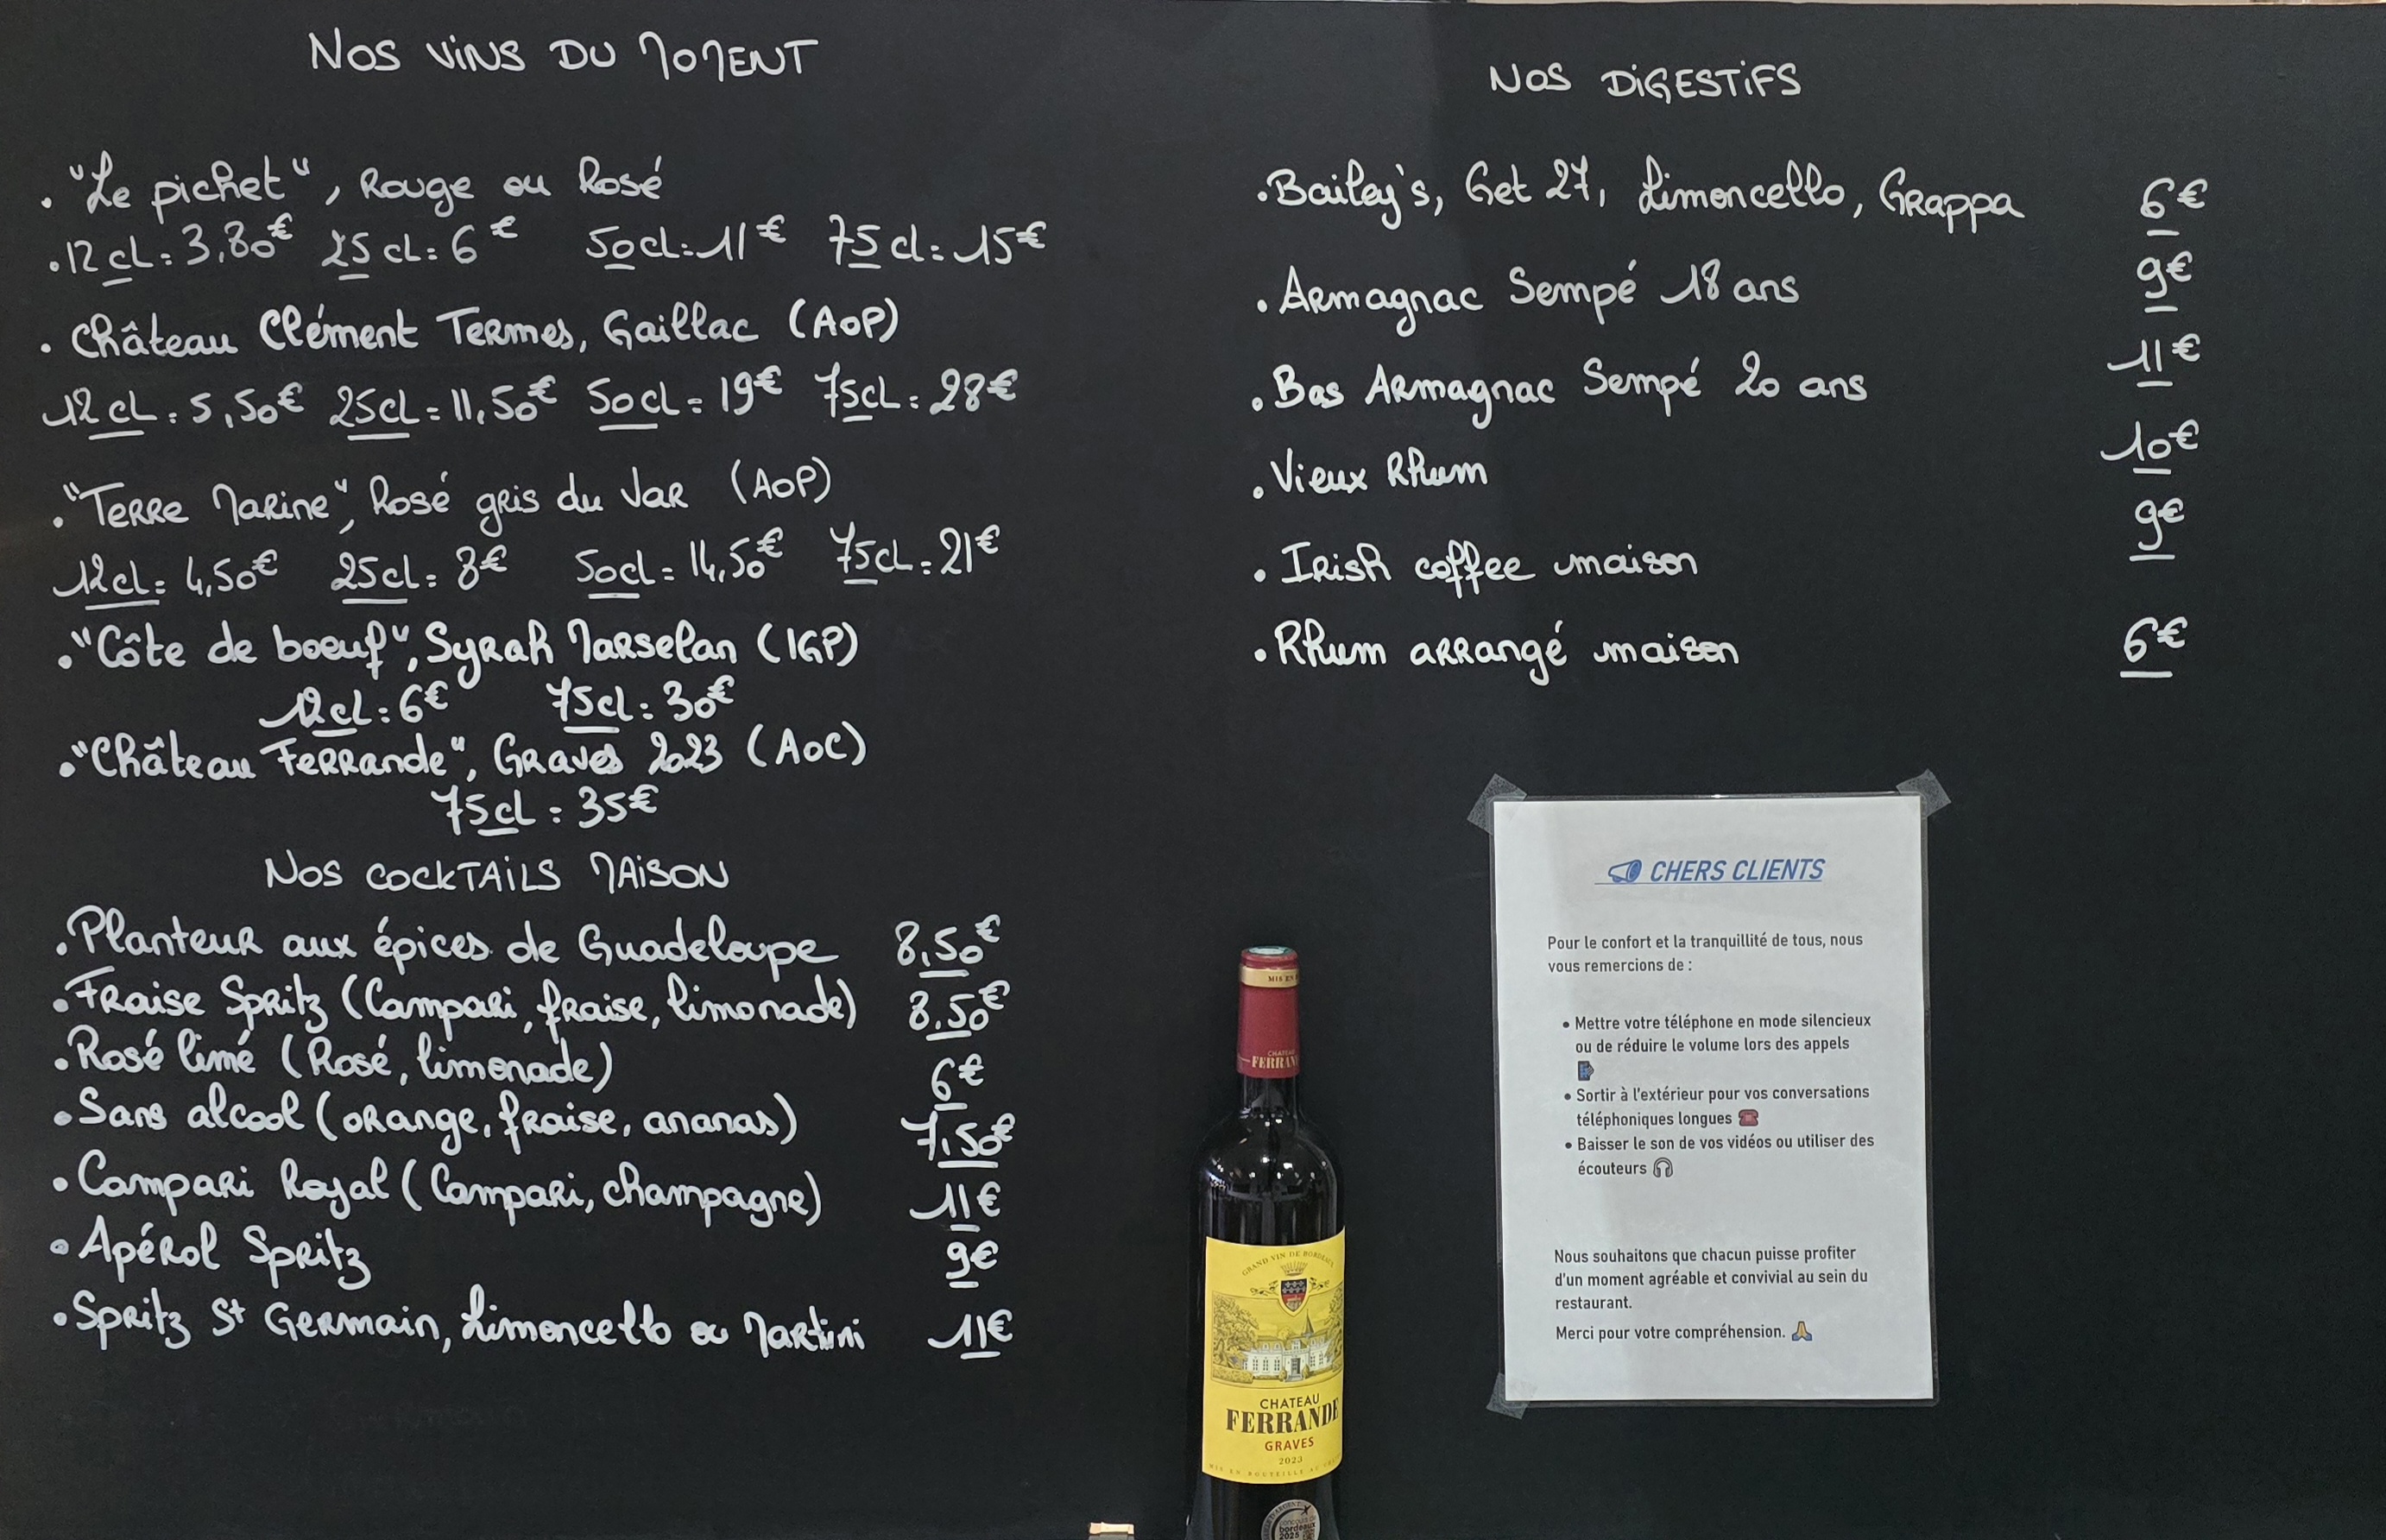 NOS VINS DU MOMENT
• "Le pichet", Rouge ou Rosé
• 12 cL = 3,80€ 25 cL = 6€ 50cl = 11€ 75 cl = 15€
• Château Clément Termes, Gaillac (AOP)
12 cL = 5,50€ 25cl = 11,50€ 50cl = 19€ 75cL = 28€
• "Terre Marine", Rosé gris du Var (AOP)
12cl = 4,50€ 25cl = 8€ 50cl = 14,50€ 75cL = 21€
• "Côte de boeuf", Syrah Marselan (IGP)
12cl = 6€ 75cl = 30€
• "Château Ferrande", Graves 2023 (AOC)
75cl = 35€
NOS COCKTAILS MAISON
• Planteur aux épices de Guadeloupe 8,50€
• Fraise Spritz (Campari, fraise, limonade) 8,50€
• Rosé limé (Rosé, limonade) 6€
• Sans alcool (orange, fraise, ananas) 7,50€
• Campari Royal (Campari, champagne) 11€
• Apérol Spritz 9€
• Spritz St Germain, Limoncello ou Martini 11€
NOS DIGESTIFS
• Bailey's, Get 27, Limoncello, Grappa 6€
• Armagnac Sempé 18 ans 9€
• Bas Armagnac Sempé 20 ans 11€
• Vieux Rhum 10€
• Irish coffee maison 9€
• Rhum arrangé maison 6€
CHERS CLIENTS
Pour le confort et la tranquillité de tous, nous
vous remercions de :
• Mettre votre téléphone en mode silencieux
ou de réduire le volume lors des appels
• Sortir à l'extérieur pour vos conversations
téléphoniques longues ☎️
• Baisser le son de vos vidéos ou utiliser des
écouteurs 🎧
Nous souhaitons que chacun puisse profiter
d'un moment agréable et convivial au sein du
restaurant.
Merci pour votre compréhension. 🙏
MIS EN
CHATEAU
FERRAN
GRAND VIN DE BORDEAUX
CHATEAU
FERRANDE
GRAVES
2023
MIS EN BOUTEILLE AU
bordeaux
2025